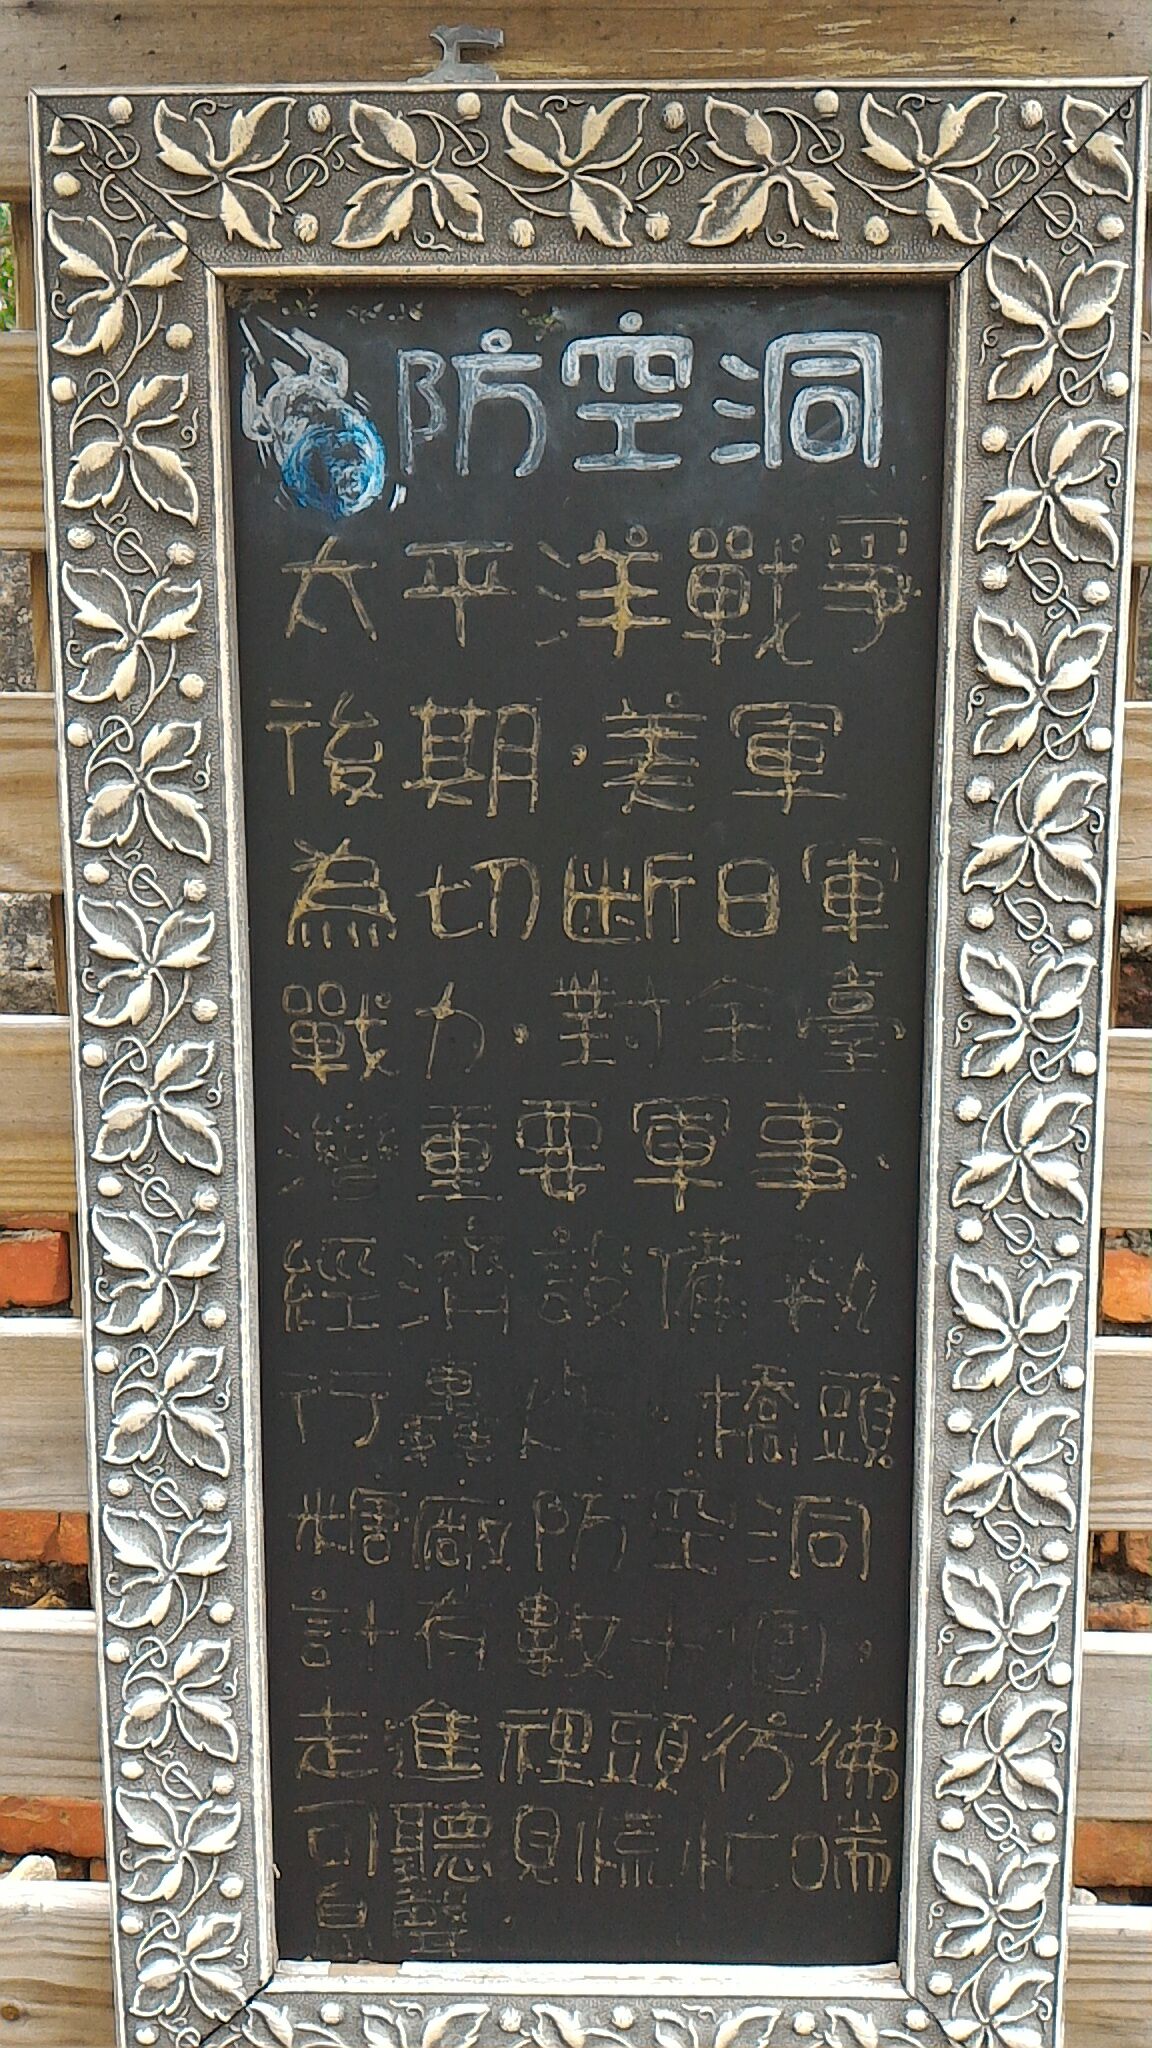 防空洞
太平洋戰爭
後期,美軍
為切斷日軍
戰力,對全臺
灣重要軍事、
經濟設備執
行轟炸。橋頭
糖廠防空洞
計有數十個,
走進裡頭彷彿
可聽見慌忙喘
息聲。